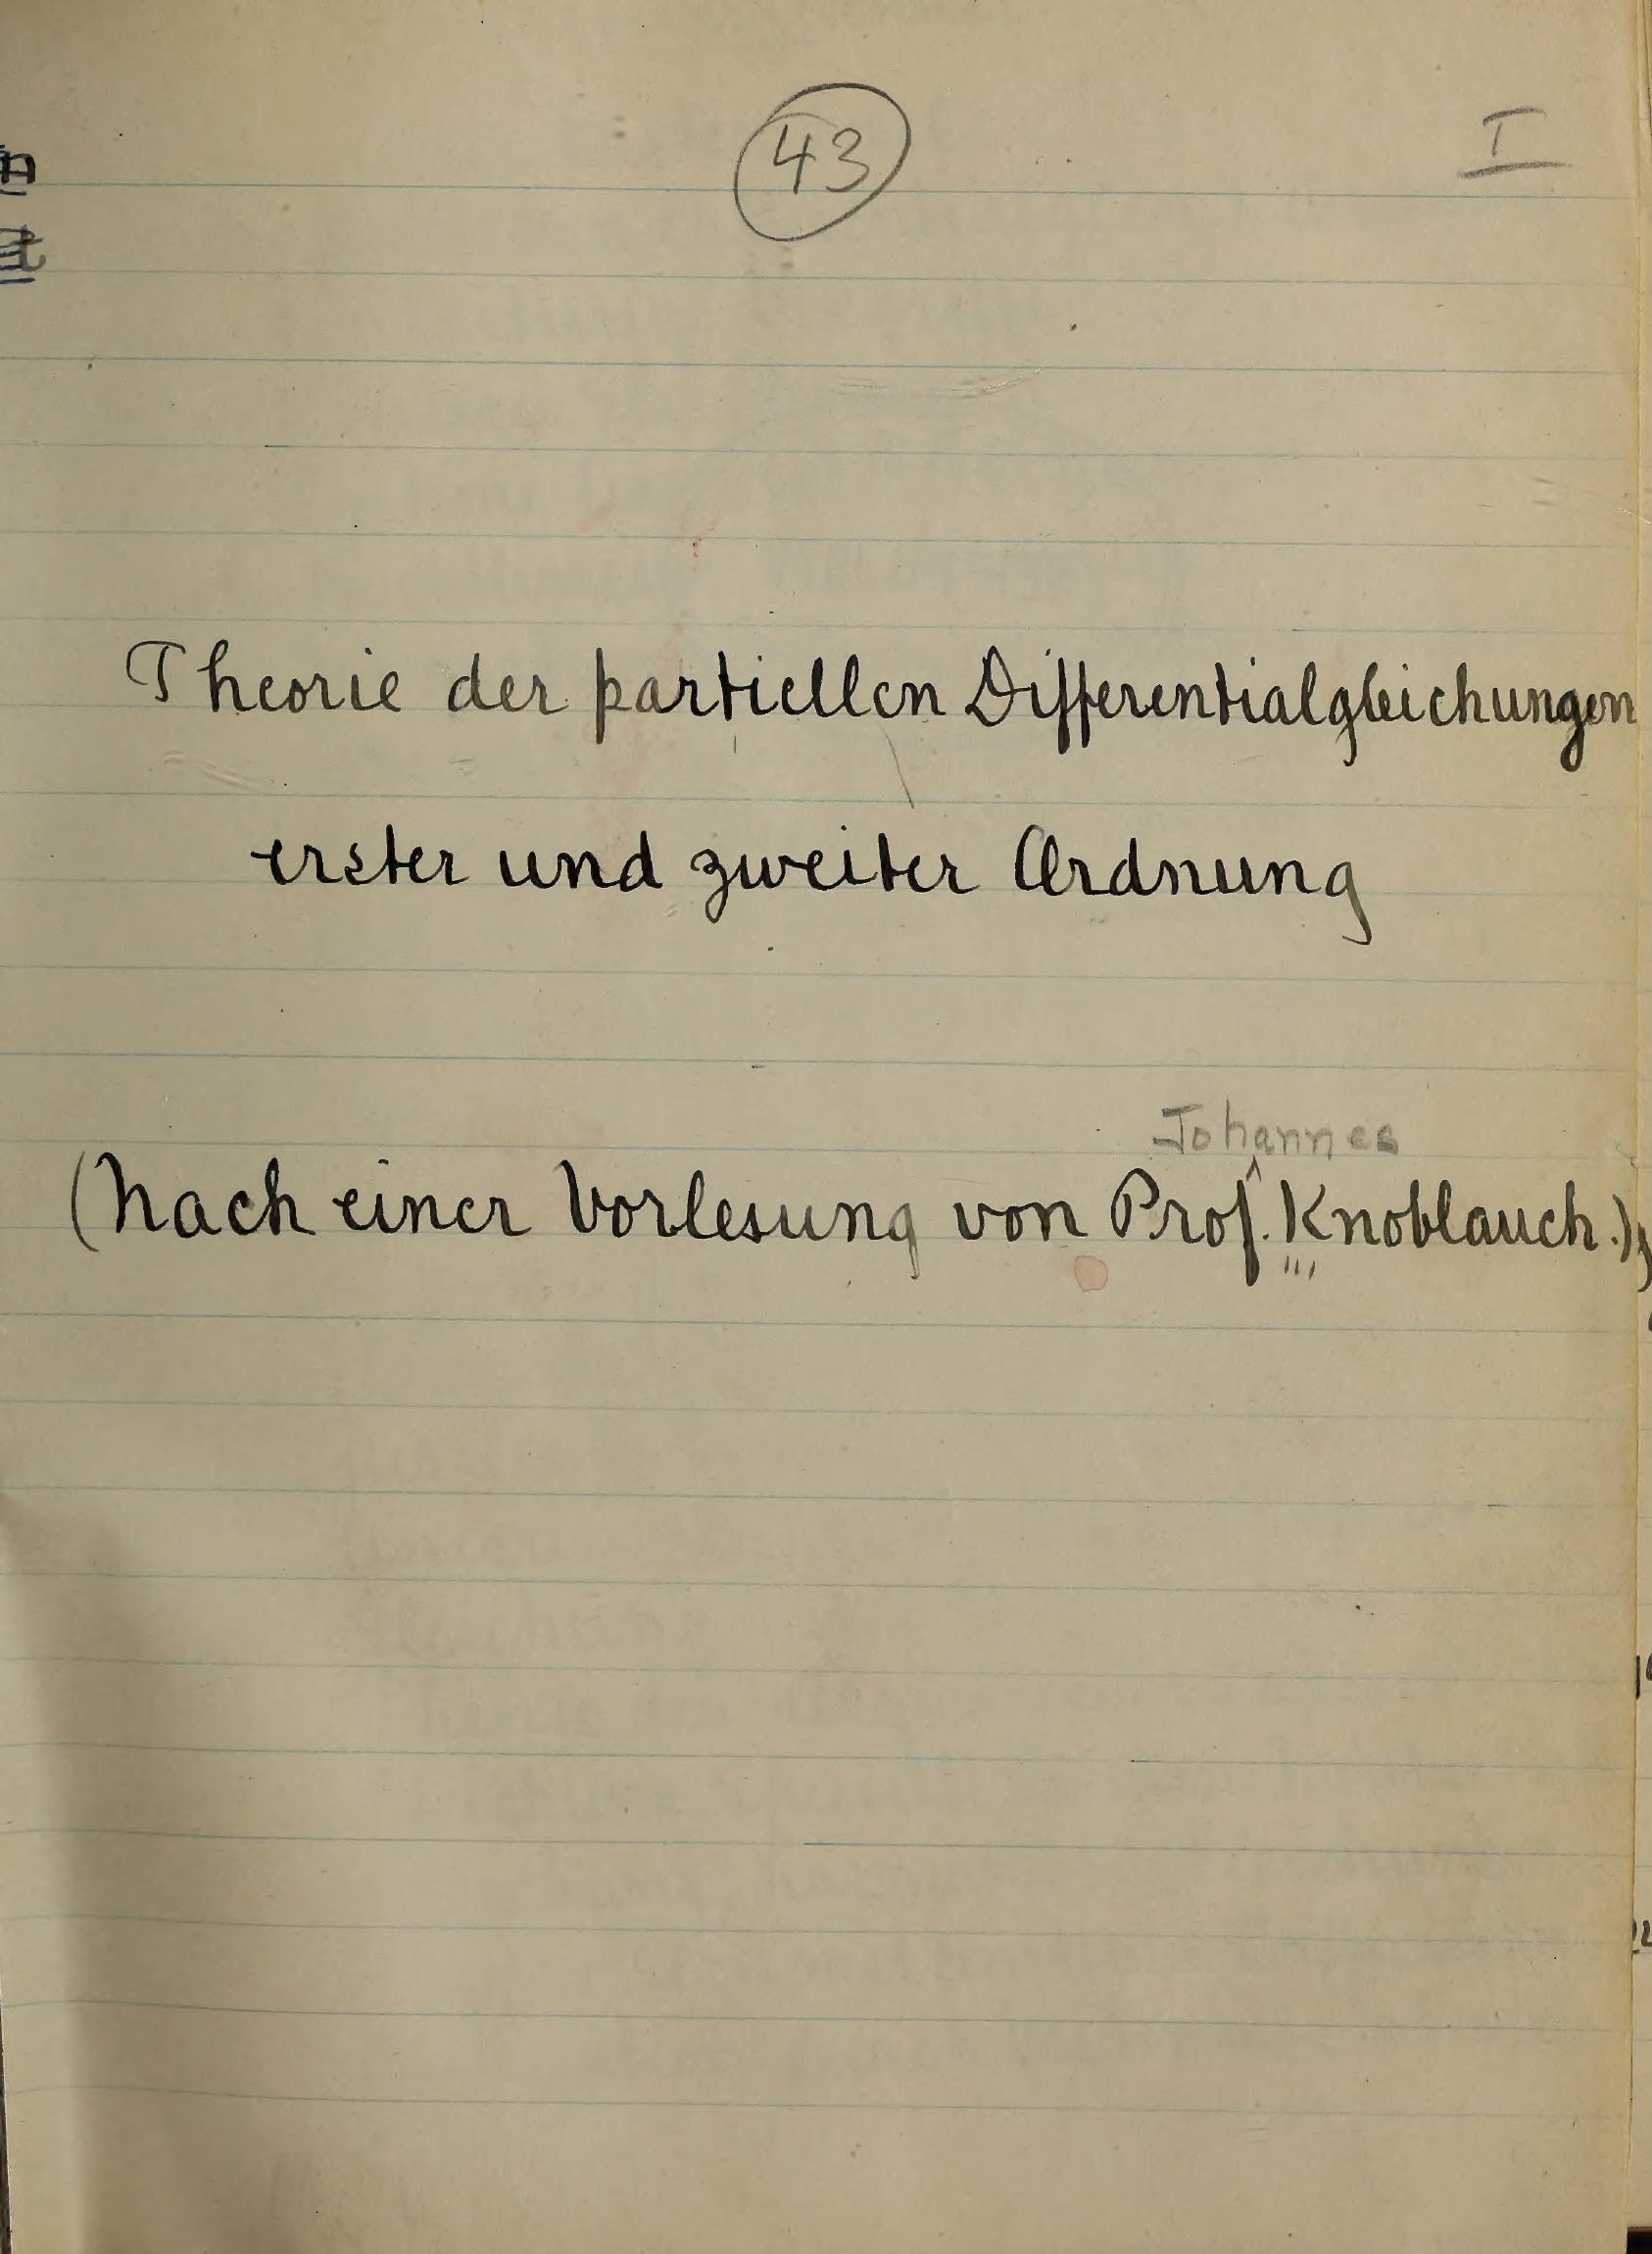 43
I
Theorie der partiellen Differentialgleichungen
erster und zweiter Ordnung
Johannes
(Nach einer Vorlesung von Prof. Knoblauch.)